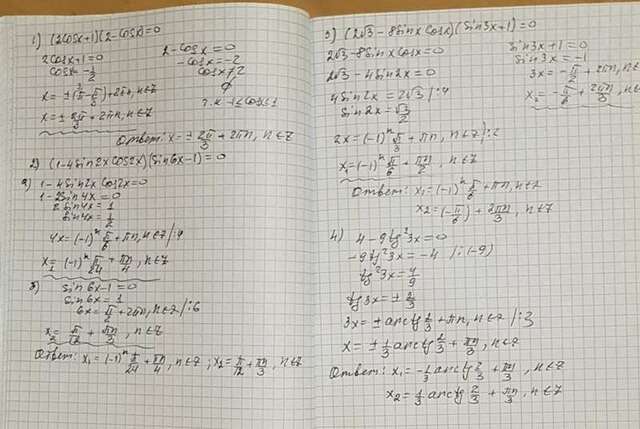 1) (2cosx+1)(2-cosx)=0
2cosx+1=0
cosx=-1/2
x=±(π-π/3)+2πn, n∈Z
x=±2π/3+2πn, n∈Z
2-cosx=0
-cosx=-2
cosx≠2
∅
т.к -1≤cosx≤1
Ответ: x=±2π/3+2πn, n∈Z
2) (1-4sin2x cos2x)(sin6x-1)=0
а) 1-4sin2x cos2x=0
1-2sin4x=0
2sin4x=1
sin4x=1/2
4x=(-1)ⁿ π/6+πn, n∈Z /:4
x₁=(-1)ⁿ π/24+πn/4, n∈Z
б) sin6x-1=0
sin6x=1
6x=π/2+2πn, n∈Z /:6
x₂=π/12+πn/3, n∈Z
Ответ: x₁=(-1)ⁿ π/24+πn/4, n∈Z; x₂=π/12+πn/3, n∈Z
3) (2√3-8sinx cosx)(sin3x+1)=0
2√3-8sinx cosx=0
2√3-4sin2x=0
4sin2x=2√3 /:4
sin2x=√3/2
2x=(-1)ⁿ π/3+πn, n∈Z /:2
x₁=(-1)ⁿ π/6+πn/2, n∈Z
sin3x+1=0
sin3x=-1
3x=-π/2+2πn, n∈Z
x₂=-π/6+2πn/3, n∈Z
Ответ: x₁=(-1)ⁿ π/6+πn, n∈Z
x₂=(-π/6)+2πn/3, n∈Z
4) 4-9tg²3x=0
-9tg²3x=-4 /:(-9)
tg²3x=4/9
tg3x=±2/3
3x=±arctg 2/3+πn, n∈Z /:3
x=±1/3 arctg 2/3+πn/3, n∈Z
Ответ: x₁=-1/3 arctg 2/3+πn/3, n∈Z
x₂=1/3 arctg 2/3+πn/3, n∈Z